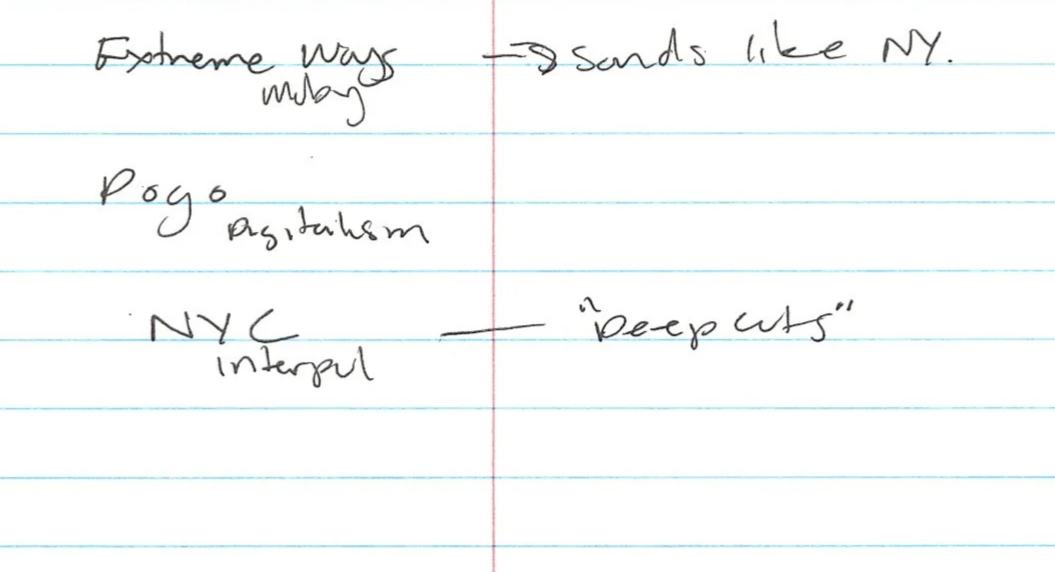 Extreme Ways → Sounds like NY.
Moby
Pogo
Digitalism
NYC — "Deep cuts"
interpol